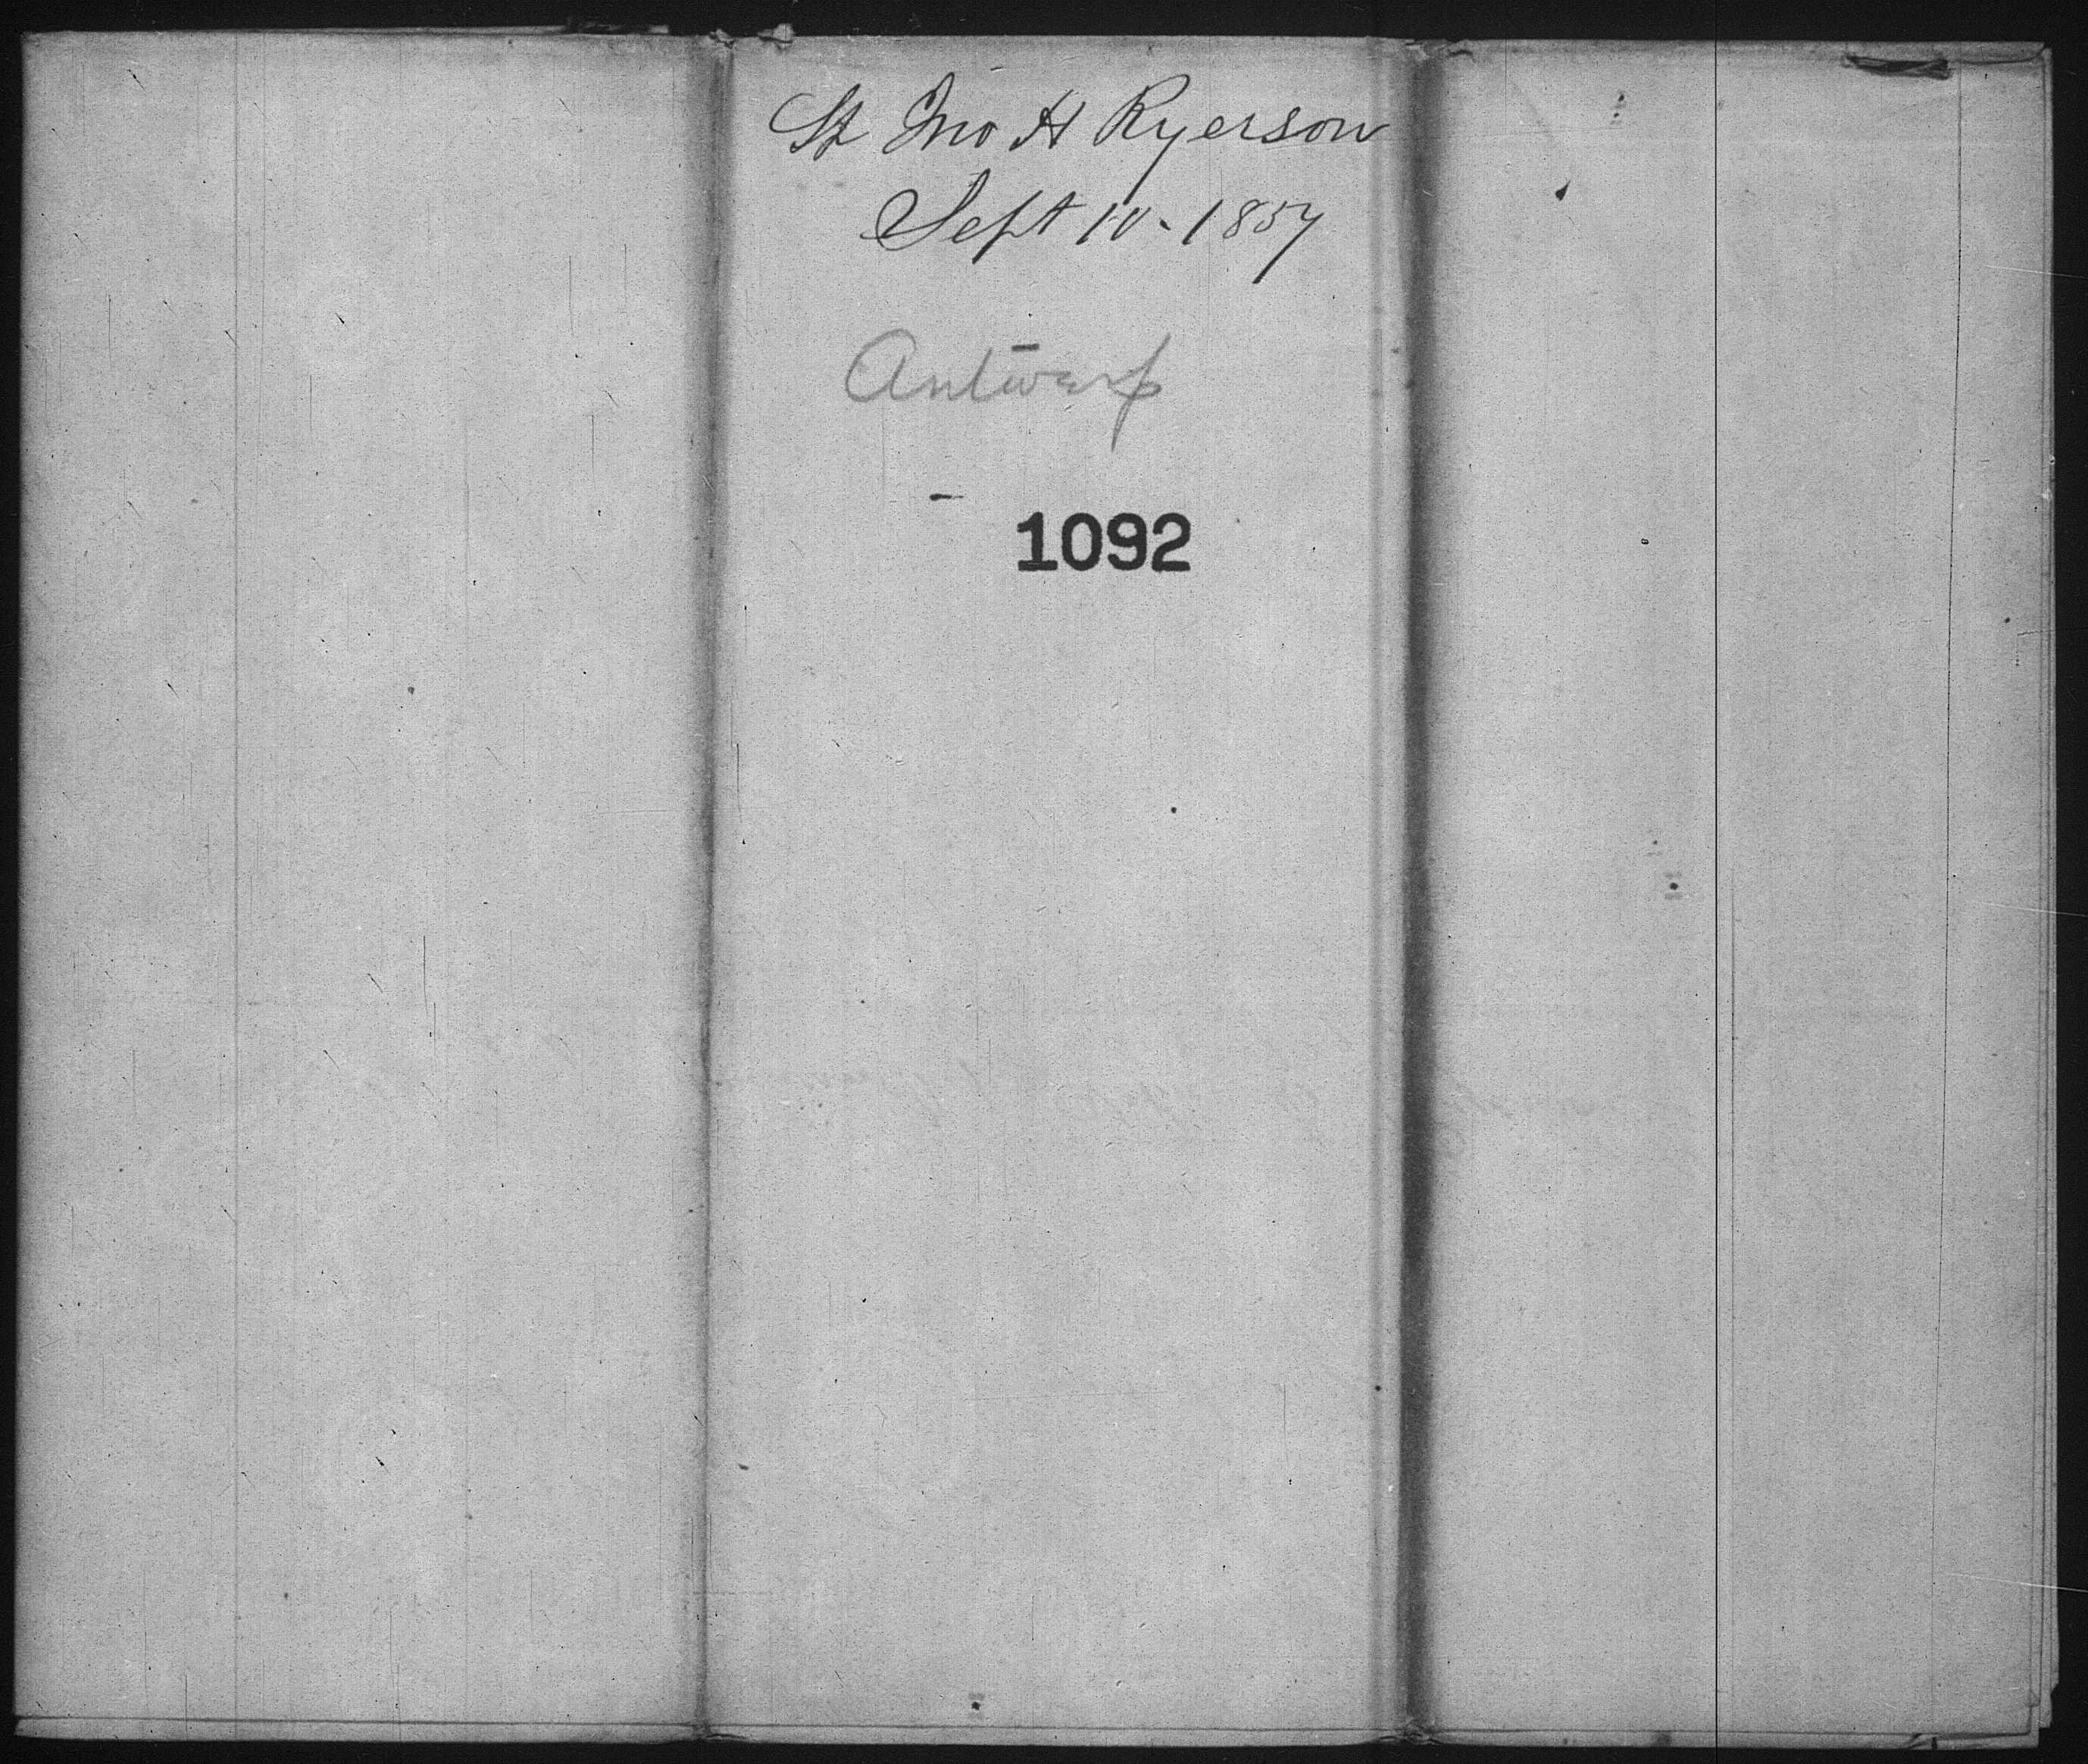 St Jno H Ryerson
Sept 10 - 1857
Antwerp
1092